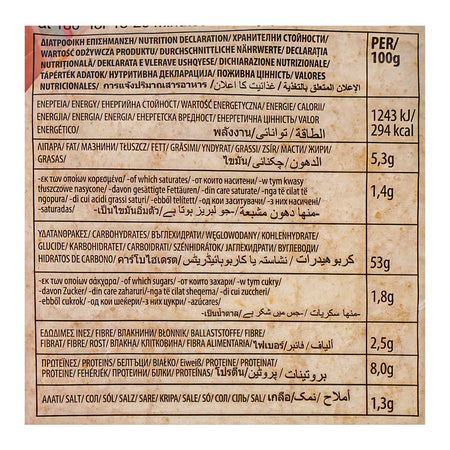 ΔΙΑΤΡΟΦΙΚΗ ΕΠΙΣΗΜΑΝΣΗ/ NUTRITION DECLARATION/ ХРАНИТЕЛНИ СТОЙНОСТИ/
WARTOŚĆ ODŻYWCZA PRODUKTU/ DURCHSCHNITTLICHE NÄHRWERTE/ DECLARAȚIA
NUTRIȚIONALĂ/ DEKLARATA E VLERAVE USHQYESE/ DICHIARAZIONE NUTRIZIONALE/
TÁPÉRTÉK ADATOK/ НУТРИТИВНА ДЕКЛАРАЦИЈА/ ПОЖИВНА ЦІННІСТЬ/ VALORES
NUTRICIONALES/ การแจ้งปริมาณสารอาหาร/ غذائیت کا اعلان/ الإعلان المتعلق بالتغذية
PER/
100g
ΕΝΕΡΓΕΙΑ/ ENERGY/ ЕНЕРГИЙНА СТОЙНОСТ/ WARTOŚĆ ENERGETYCZNA/ ENERGIE/ CALORII/
ENERGJIA/ ENERGIA/ ENERGIA/ ЕНЕРГЕТСКА ВРЕДНОСТ/ ЕНЕРГЕТИЧНА ЦІННІСТЬ/ VALOR
ENERGÉTICO/ พลังงาน/ توانائی/ الطاقة
1243 kJ/
294 kcal
ΛΙΠΑΡΑ/ FAT/ МАЗНИНИ/ TŁUSZCZ/ FETT/ GRĂSIMI/ YNDYRAT/ GRASSI/ ZSÍR/ МАСТИ/ ЖИРИ/
GRASAS/ ไขมัน/ چکنائی/ الدهون
5,3g
-εκ των οποίων κορεσμένα/ -of which saturates/ -от които наситени/ -w tym kwasy
tłuszczowe nasycone/ -davon gesättigte Fettäuren/ -din care saturate/ -nga të cilat të
ngopura/ -di cui acidi grassi saturi/ -ebből telített/ -од кога заситувачки/ -з них насичені/
-saturadas/ -เป็นไขมันอิ่มตัว/ -جو لبریز ہوتا ہے/ -منها دهون مشبعة
1,4g
ΥΔΑΤΑΝΘΡΑΚΕΣ/ CARBOHYDRATES/ ВЪГЛЕХИДРАТИ/ WĘGLOWODANY/ KOHLENHYDRATE/
GLUCIDE/ KARBOHIDRATET/ CARBOIDRATI/ SZÉNHIDRÁTOK/ ЈАГЛЕХИДРАТИ/ ВУГЛЕВОДИ/
HIDRATOS DE CARBONO/ คาร์โบไฮเดรต/ نشاستہ یا کاربوہائیڈریٹس/ كربوهيدرات
53g
-εκ των οποίων σάκχαρα/ -of which sugars/ -от които захари/ -w tym cukry/
-davon Zucker/ -din care zaharuri/ -nga të cilat sheqerna/ -di cui zuccheri/
-ebből cukrok/ -од кои шеќери/ -з них цукри/ -azúcares/
-เป็นน้ำตาล/ -جس میں شکر ہے/ -منها سكريات
1,8g
ΕΔΩΔΙΜΕΣ ΙΝΕΣ/ FIBRE/ ВЛАКНИНИ/ BŁONNIK/ BALLASTSTOFFE/ FIBRE/
FIBRAT/ FIBRE/ ROST/ ВЛАКНО/ КЛІТКОВИНА/ FIBRA ALIMENTARIA/ ไฟเบอร์/ فائبر/ ألياف
2,5g
ΠΡΩΤΕΪΝΕΣ/ PROTEINS/ БЕЛТЪЦИ/ BIAŁKO/ Eiweiß/ PROTEINE/ PROTEINAT/
PROTEINE/ FEHÉRJÉK/ ПРОТЕИНИ/ БІЛКИ/ PROTEÍNAS/ โปรตีน/ پروٹین/ بروتينات
8,0g
ΑΛΑΤΙ/ SALT/ СОЛ/ SÓL/ SALZ/ SARE/ KRIPA/ SALE/ SÓ/ СОЛ/ СІЛЬ/ SAL/ เกลือ/ نمک/ أملاح
1,3g